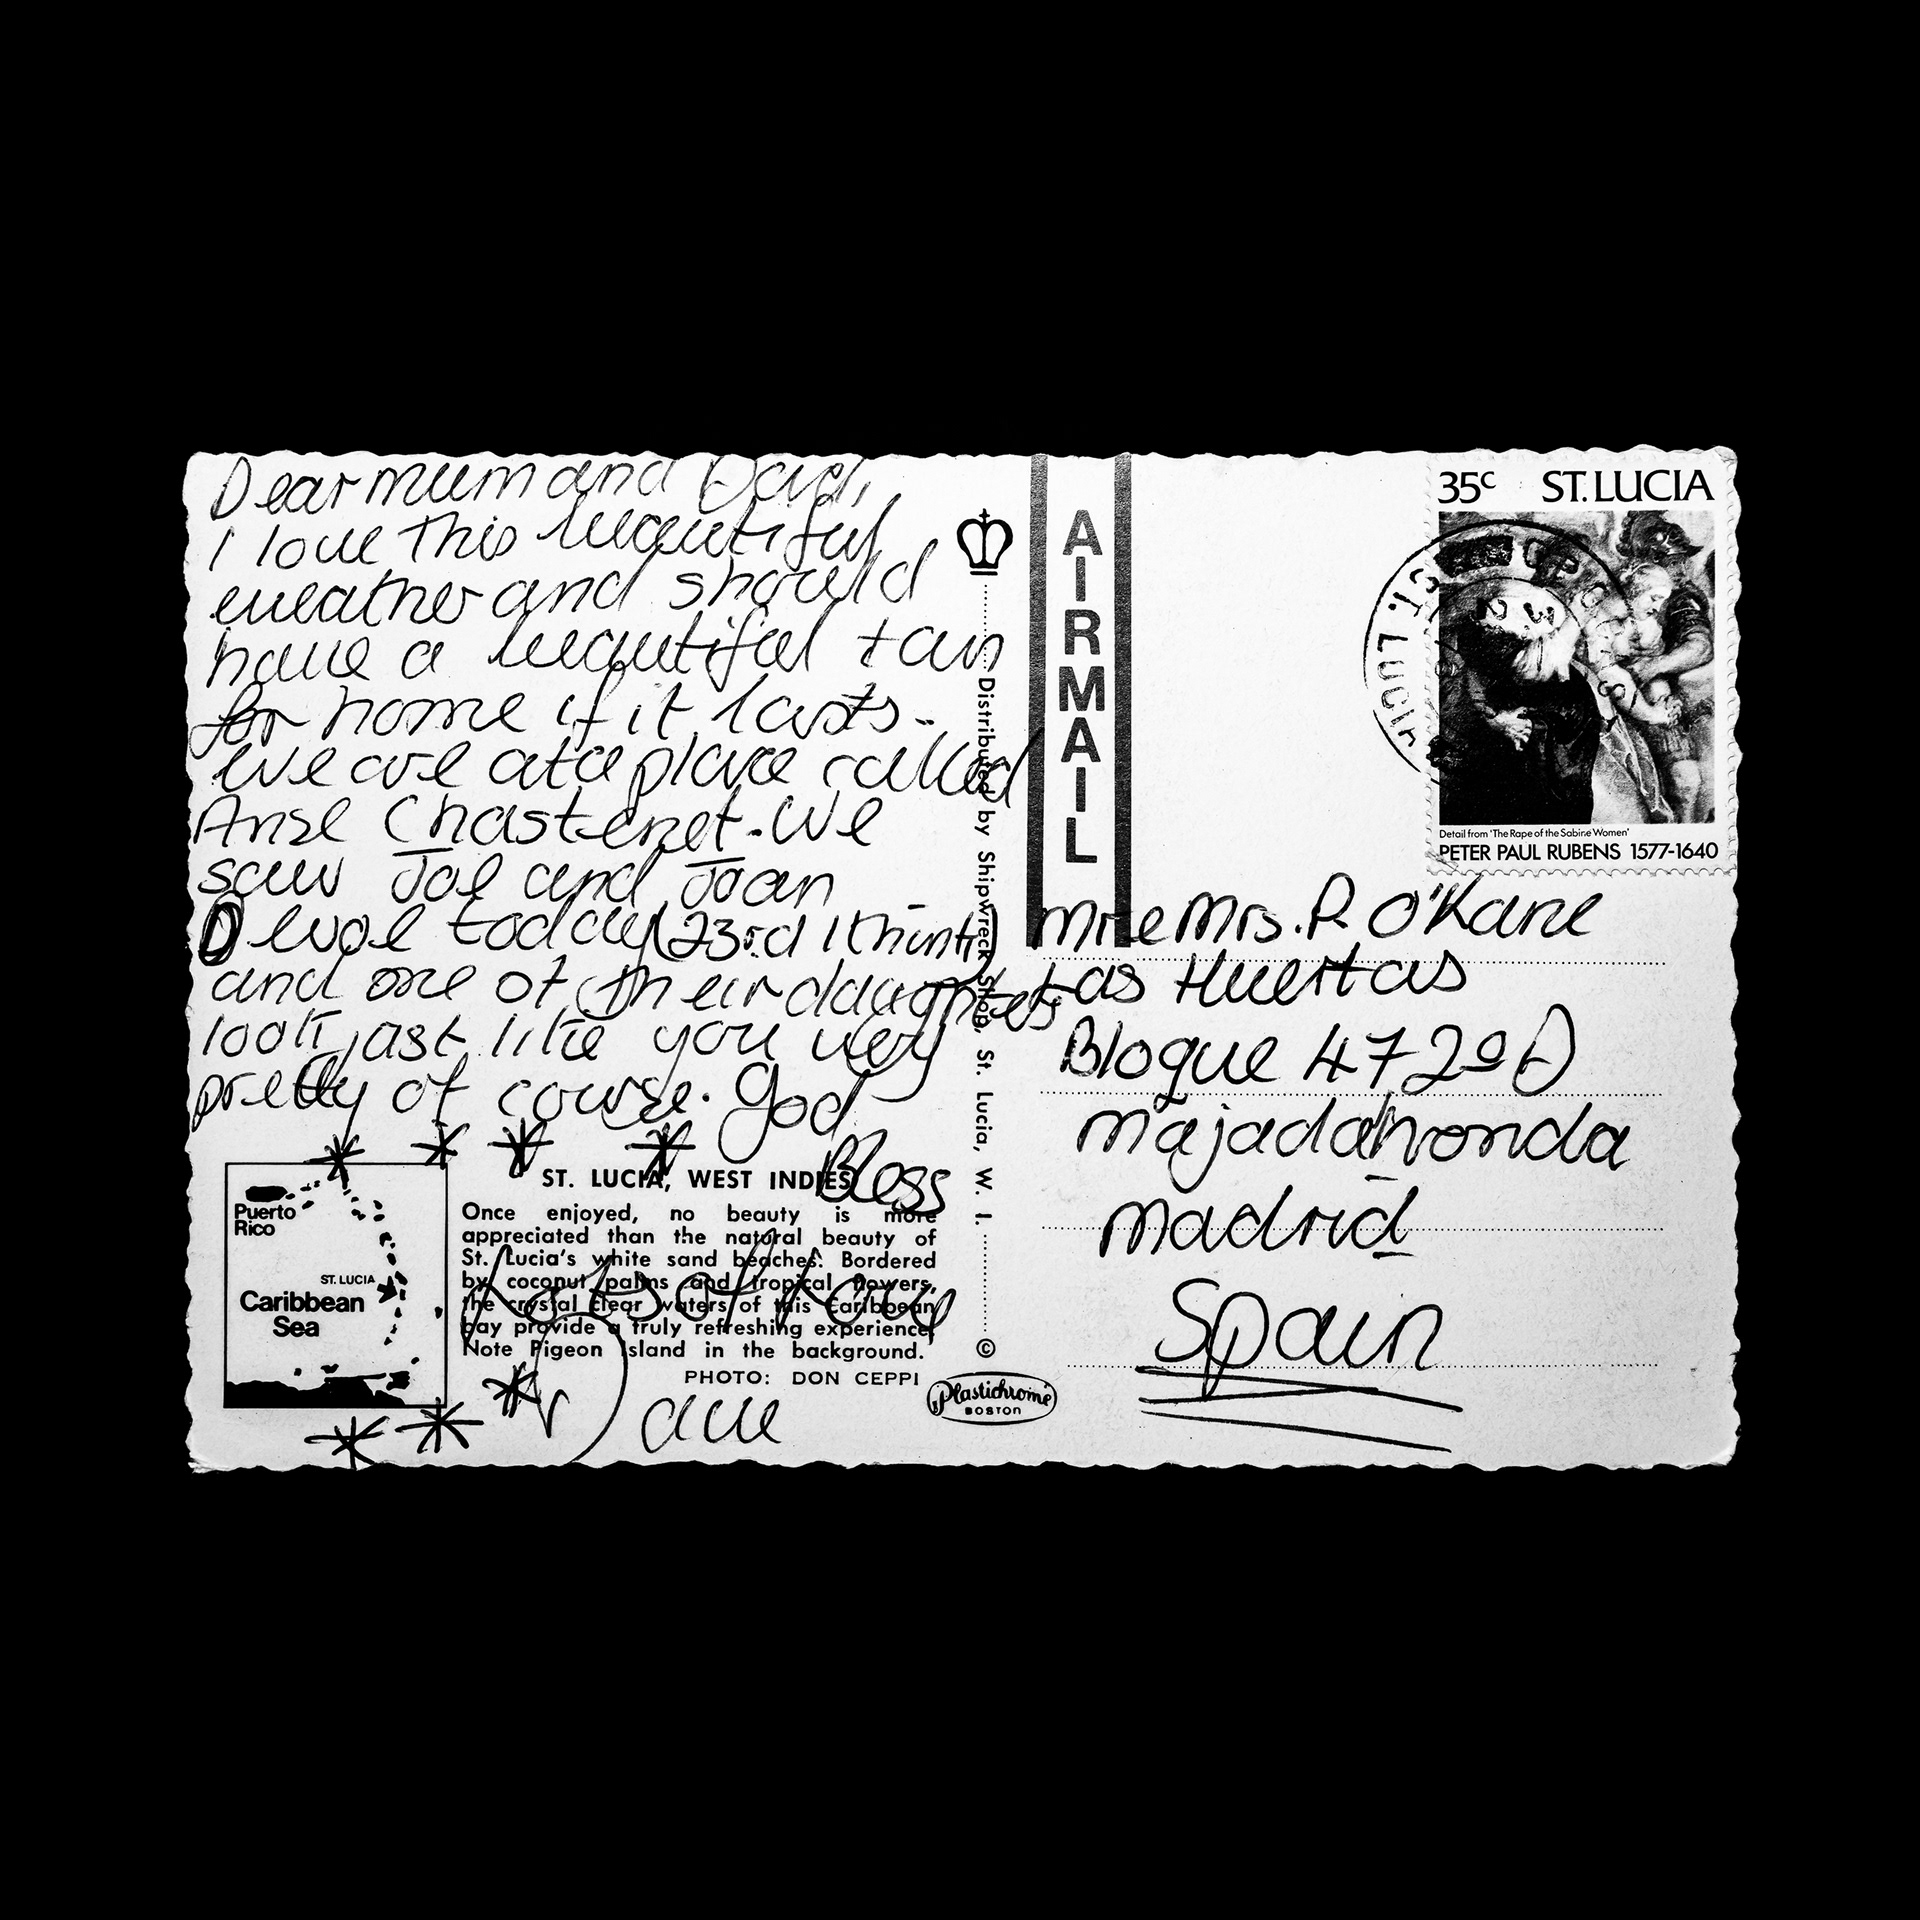 Dear mum and Dad,
I love this beautiful
weather and should
have a beautiful tan
for home if it lasts.
We are at a place called
Anse Chastenet. We
saw Joe and Joan
Devoe today (23rd I think)
and one of their daughters
look just like you very
pretty of course. God
Bless
Lots of love
Dave
ST. LUCIA, WEST INDIES
Once enjoyed, no beauty is more
appreciated than the natural beauty of
St. Lucia's white sand beaches. Bordered
by coconut palms and tropical flowers,
the crystal clear waters of this Caribbean
bay provide a truly refreshing experience.
Note Pigeon Island in the background.
PHOTO: DON CEPPI
Puerto
Rico
ST. LUCIA
Caribbean
Sea
Distributed by Shipwreck Shop, St. Lucia, W. I.
©
Plastichrome
BOSTON
AIRMAIL
35c ST. LUCIA
ST. LUCIA
Detail from 'The Rape of the Sabine Women'
PETER PAUL RUBENS 1577-1640
Mr e Mrs. P. O'Kane
Las Huertas
Bloque 47 2º D
Majadahonda
Madrid
Spain